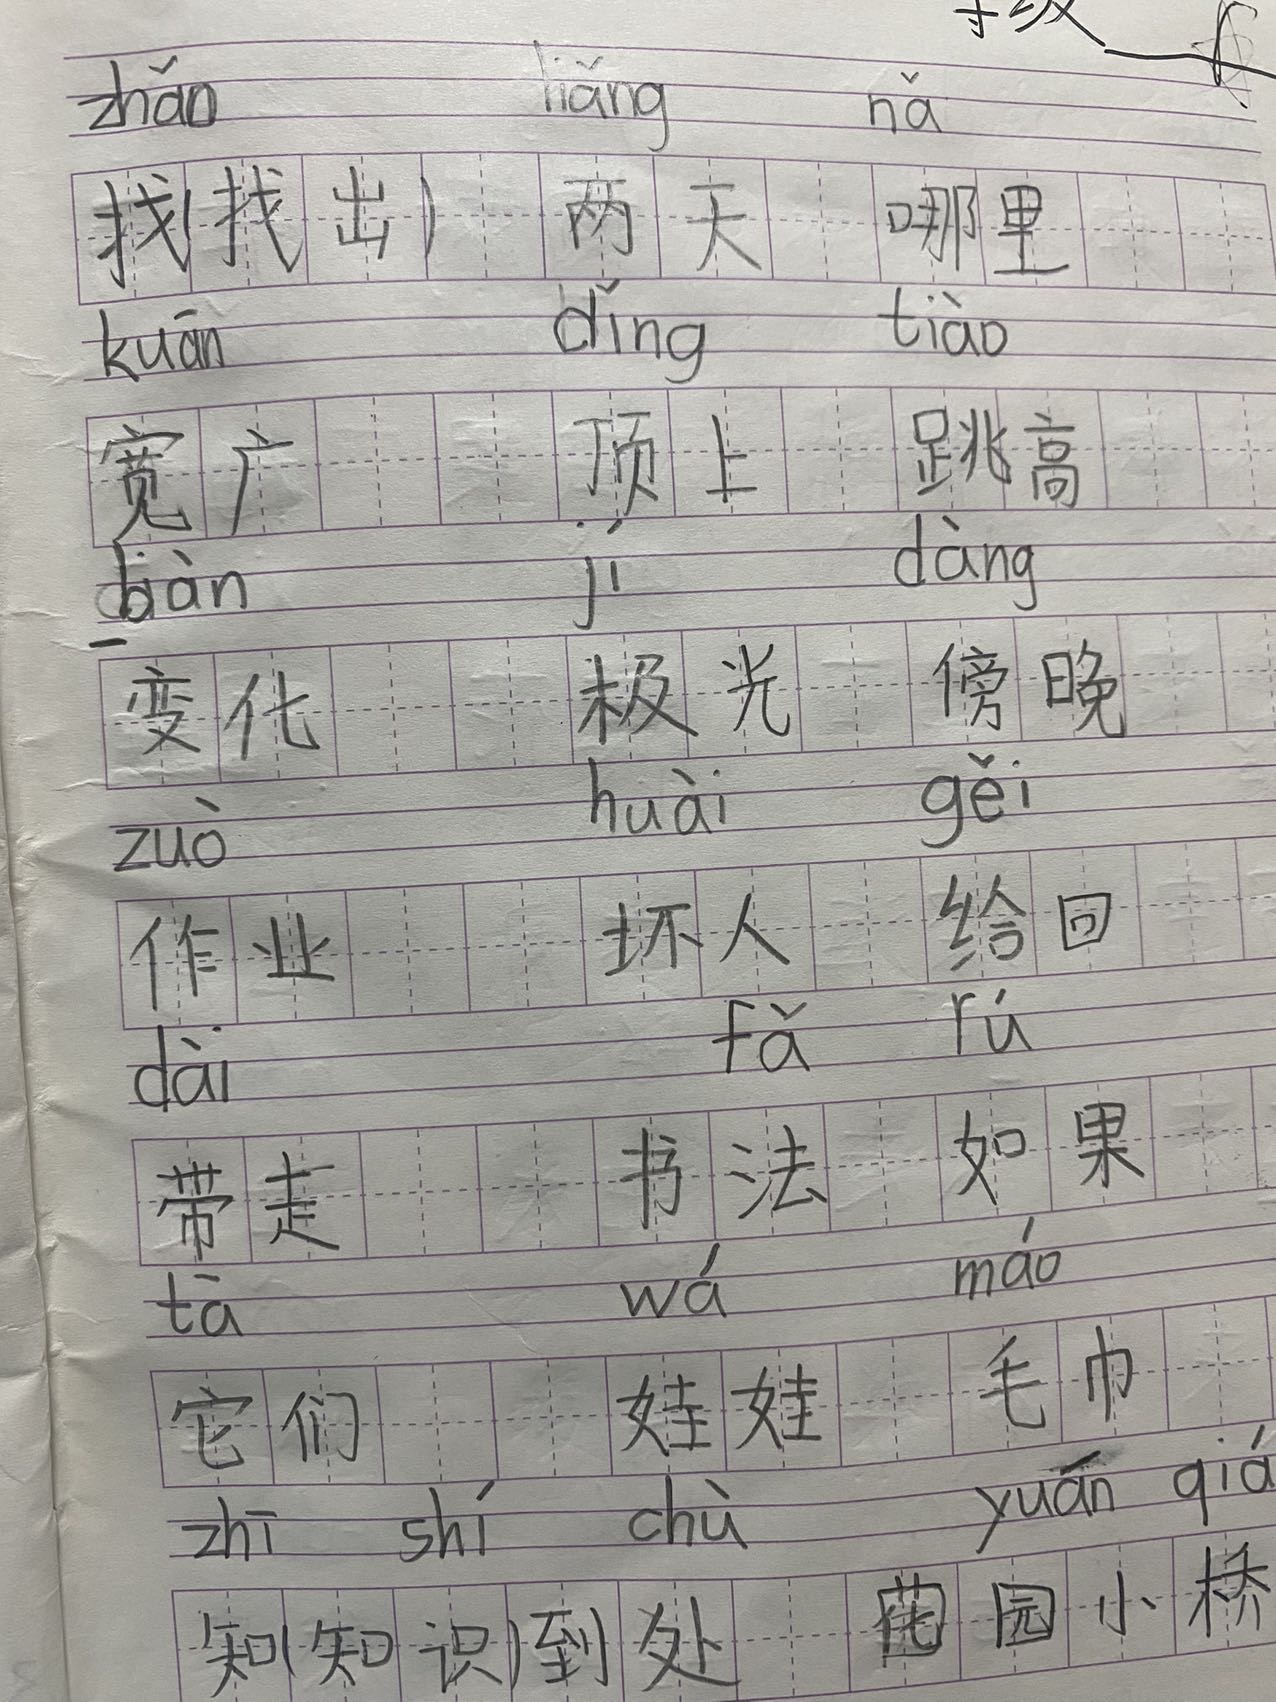 级
zhǎo liǎng nǎ
找(找出) 两天 哪里
kuān dǐng tiào
宽广 顶上 跳高
biàn jí dàng
变化 极光 傍晚
zuò huài gěi
作业 坏人 给回
dài fǎ rú
带走 书法 如果
tà wá máo
它们 娃娃 毛巾
zhī shí chù yuán qiá
知(知识)到处 花园小桥